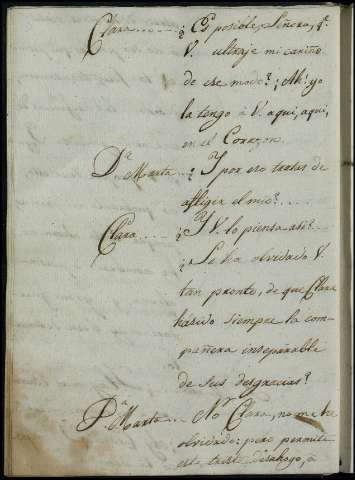 Clara..... ¿Es posible, Señora, q.e
V. ultraje mi cariño
de ese modo? ¡Ah! yo
la tengo à V. aqui, aqui,
en el Corazon.
D.ª Marta... ¿Y por eso tratas de
afligir el mio?....
Clara.... ¿Y V. lo piensa asi?
¿Se ha olvidado V.
tan pronto, de que Clara
há sido siempre la com-
pañera inseparable
de sus desgracias?
D.ª Marta... No, Clara, no me he
olvidado: pero permite
este triste desahogo, à